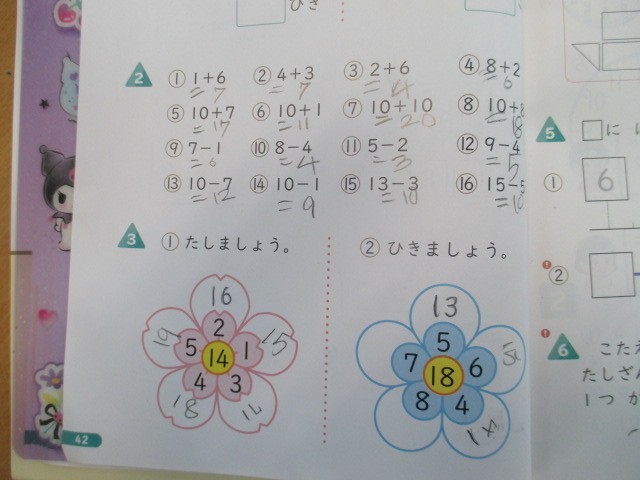 ひき
2 ① 1+6 ② 4+3 ③ 2+6 ④ 8+2
=7 =7 =4 =6
⑤ 10+7 ⑥ 10+1 ⑦ 10+10 ⑧ 10+
=17 =11 =20
⑨ 7-1 ⑩ 8-4 ⑪ 5-2 ⑫ 9-4
=6 =4 =3
⑬ 10-7 ⑭ 10-1 ⑮ 13-3 ⑯ 15-5
=12 =9 =10 =10
3 ① たしましょう。 ② ひきましょう。
16
19 2 15
5 14 1
4 3
18
13
5
7 18 6
8 4
14
42
5 □に
① 6
②
6 こたえ
たしざん
1つ